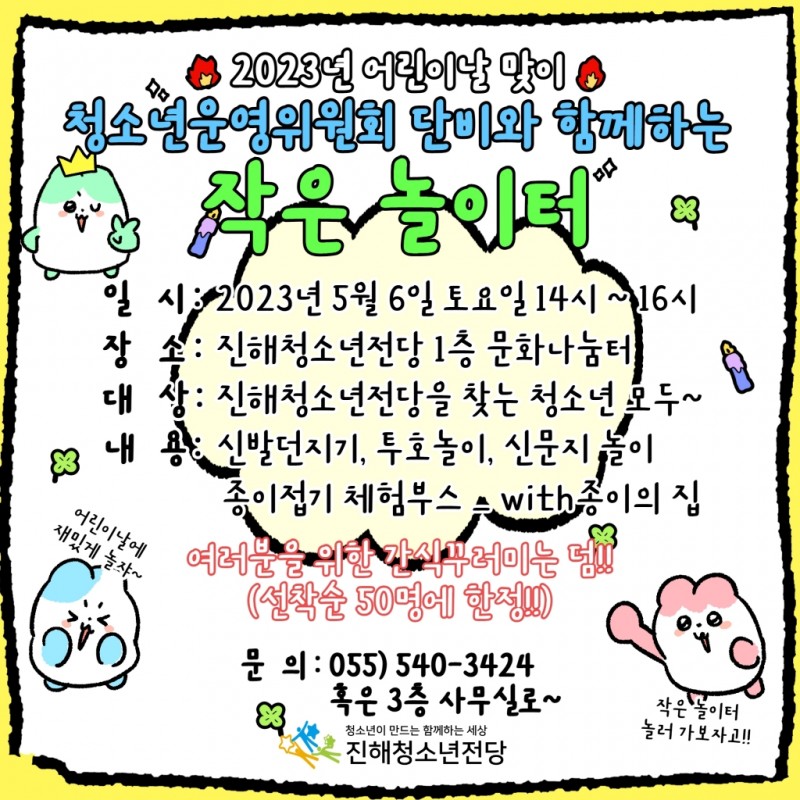 2023년 어린이날 맞이
청소년운영위원회 단비와 함께하는
작은 놀이터
일 시: 2023년 5월 6일 토요일 14시 ~ 16시
장 소: 진해청소년전당 1층 문화나눔터
대 상: 진해청소년전당을 찾는 청소년 모두~
내 용: 신발던지기, 투호놀이, 신문지 놀이
종이접기 체험부스 - with종이의 집
어린이날에
재밌게 놀자~
여러분을 위한 간식꾸러미는 덤!!
(선착순 50명에 한정!!)
문 의: 055) 540-3424
혹은 3층 사무실로~
작은 놀이터
놀러 가보자고!!
청소년이 만드는 함께하는 세상
진해청소년전당